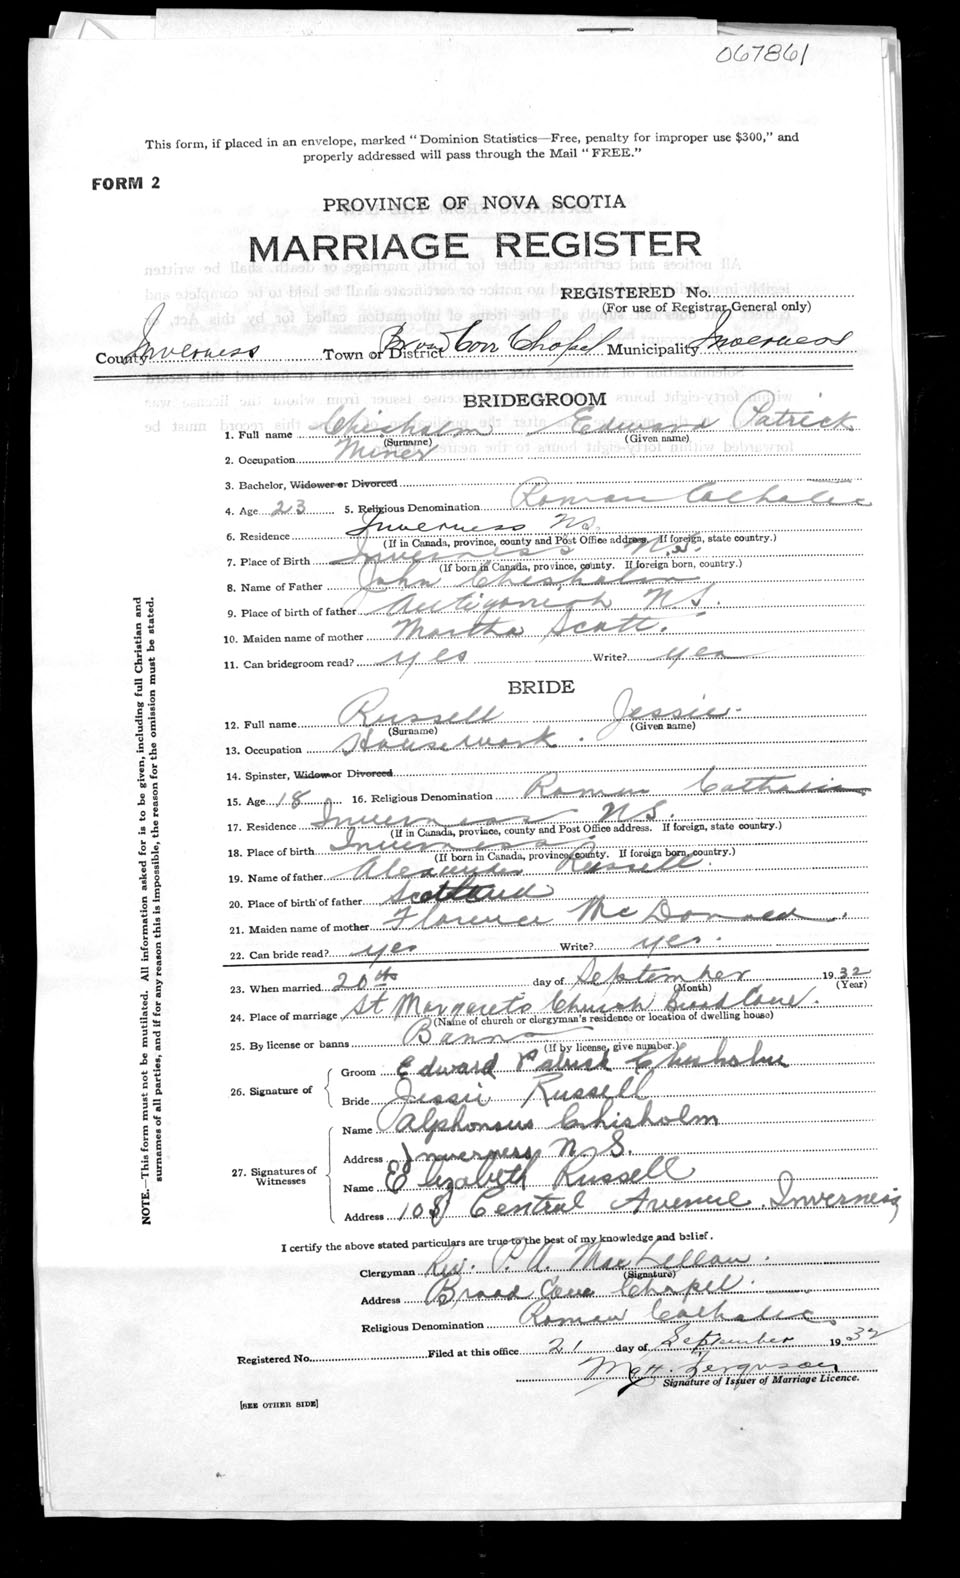 067861
This form, if placed in an envelope, marked "Dominion Statistics—Free, penalty for improper use $300," and
properly addressed will pass through the Mail "FREE."
FORM 2
PROVINCE OF NOVA SCOTIA
MARRIAGE REGISTER
REGISTERED No.
(For use of Registrar General only)
County Inverness Town or District Broad Cove Chapel Municipality Inverness
BRIDEGROOM
1. Full name Chisholm Edward Patrick
(Surname) (Given name)
2. Occupation Miner
3. Bachelor, Widower or Divorced
4. Age 23 5. Religious Denomination Roman Catholic
6. Residence Inverness NS.
(If in Canada, province, county and Post Office address. If foreign, state country.)
7. Place of Birth Inverness N.S.
(If born in Canada, province, county. If foreign born, country.)
8. Name of Father John Chisholm
9. Place of birth of father Antigonish N.S.
10. Maiden name of mother Martha Scott.
11. Can bridegroom read? yes Write? yes
BRIDE
12. Full name Russell Jessie.
(Surname) (Given name)
13. Occupation Housework.
14. Spinster, Widow or Divorced
15. Age 18 16. Religious Denomination Roman Catholic
17. Residence Inverness NS.
(If in Canada, province, county and Post Office address. If foreign, state country.)
18. Place of birth Inverness
(If born in Canada, province, county. If foreign born, country.)
19. Name of father Alexander Russell.
20. Place of birth of father Scotland
21. Maiden name of mother Florence McDonald.
22. Can bride read? yes Write? yes.
23. When married 20th day of September 1932
(Month) (Year)
24. Place of marriage St Margaret's Church Broad Cove.
(Name of church or clergyman's residence or location of dwelling house)
25. By license or banns Banns
(If by license, give number.)
26. Signature of Groom Edward Patrick Chisholm
Bride Jessie Russell
27. Signatures of Witnesses Name Alphonsus Chisholm
Address Inverness N.S.
Name Elizabeth Russell
Address 108 Central Avenue. Inverness
I certify the above stated particulars are true to the best of my knowledge and belief.
Clergyman Rev. P. A. MacLellan.
(Signature)
Address Broad Cove Chapel.
Religious Denomination Roman Catholic
Registered No. Filed at this office 21 day of September 1932
Ferguson
Signature of Issuer of Marriage Licence.
[SEE OTHER SIDE]
NOTE.—This form must not be mutilated. All information asked for is to be given, including full Christian and
surnames of all parties, and if for any reason this is impossible, the reason for the omission must be stated.